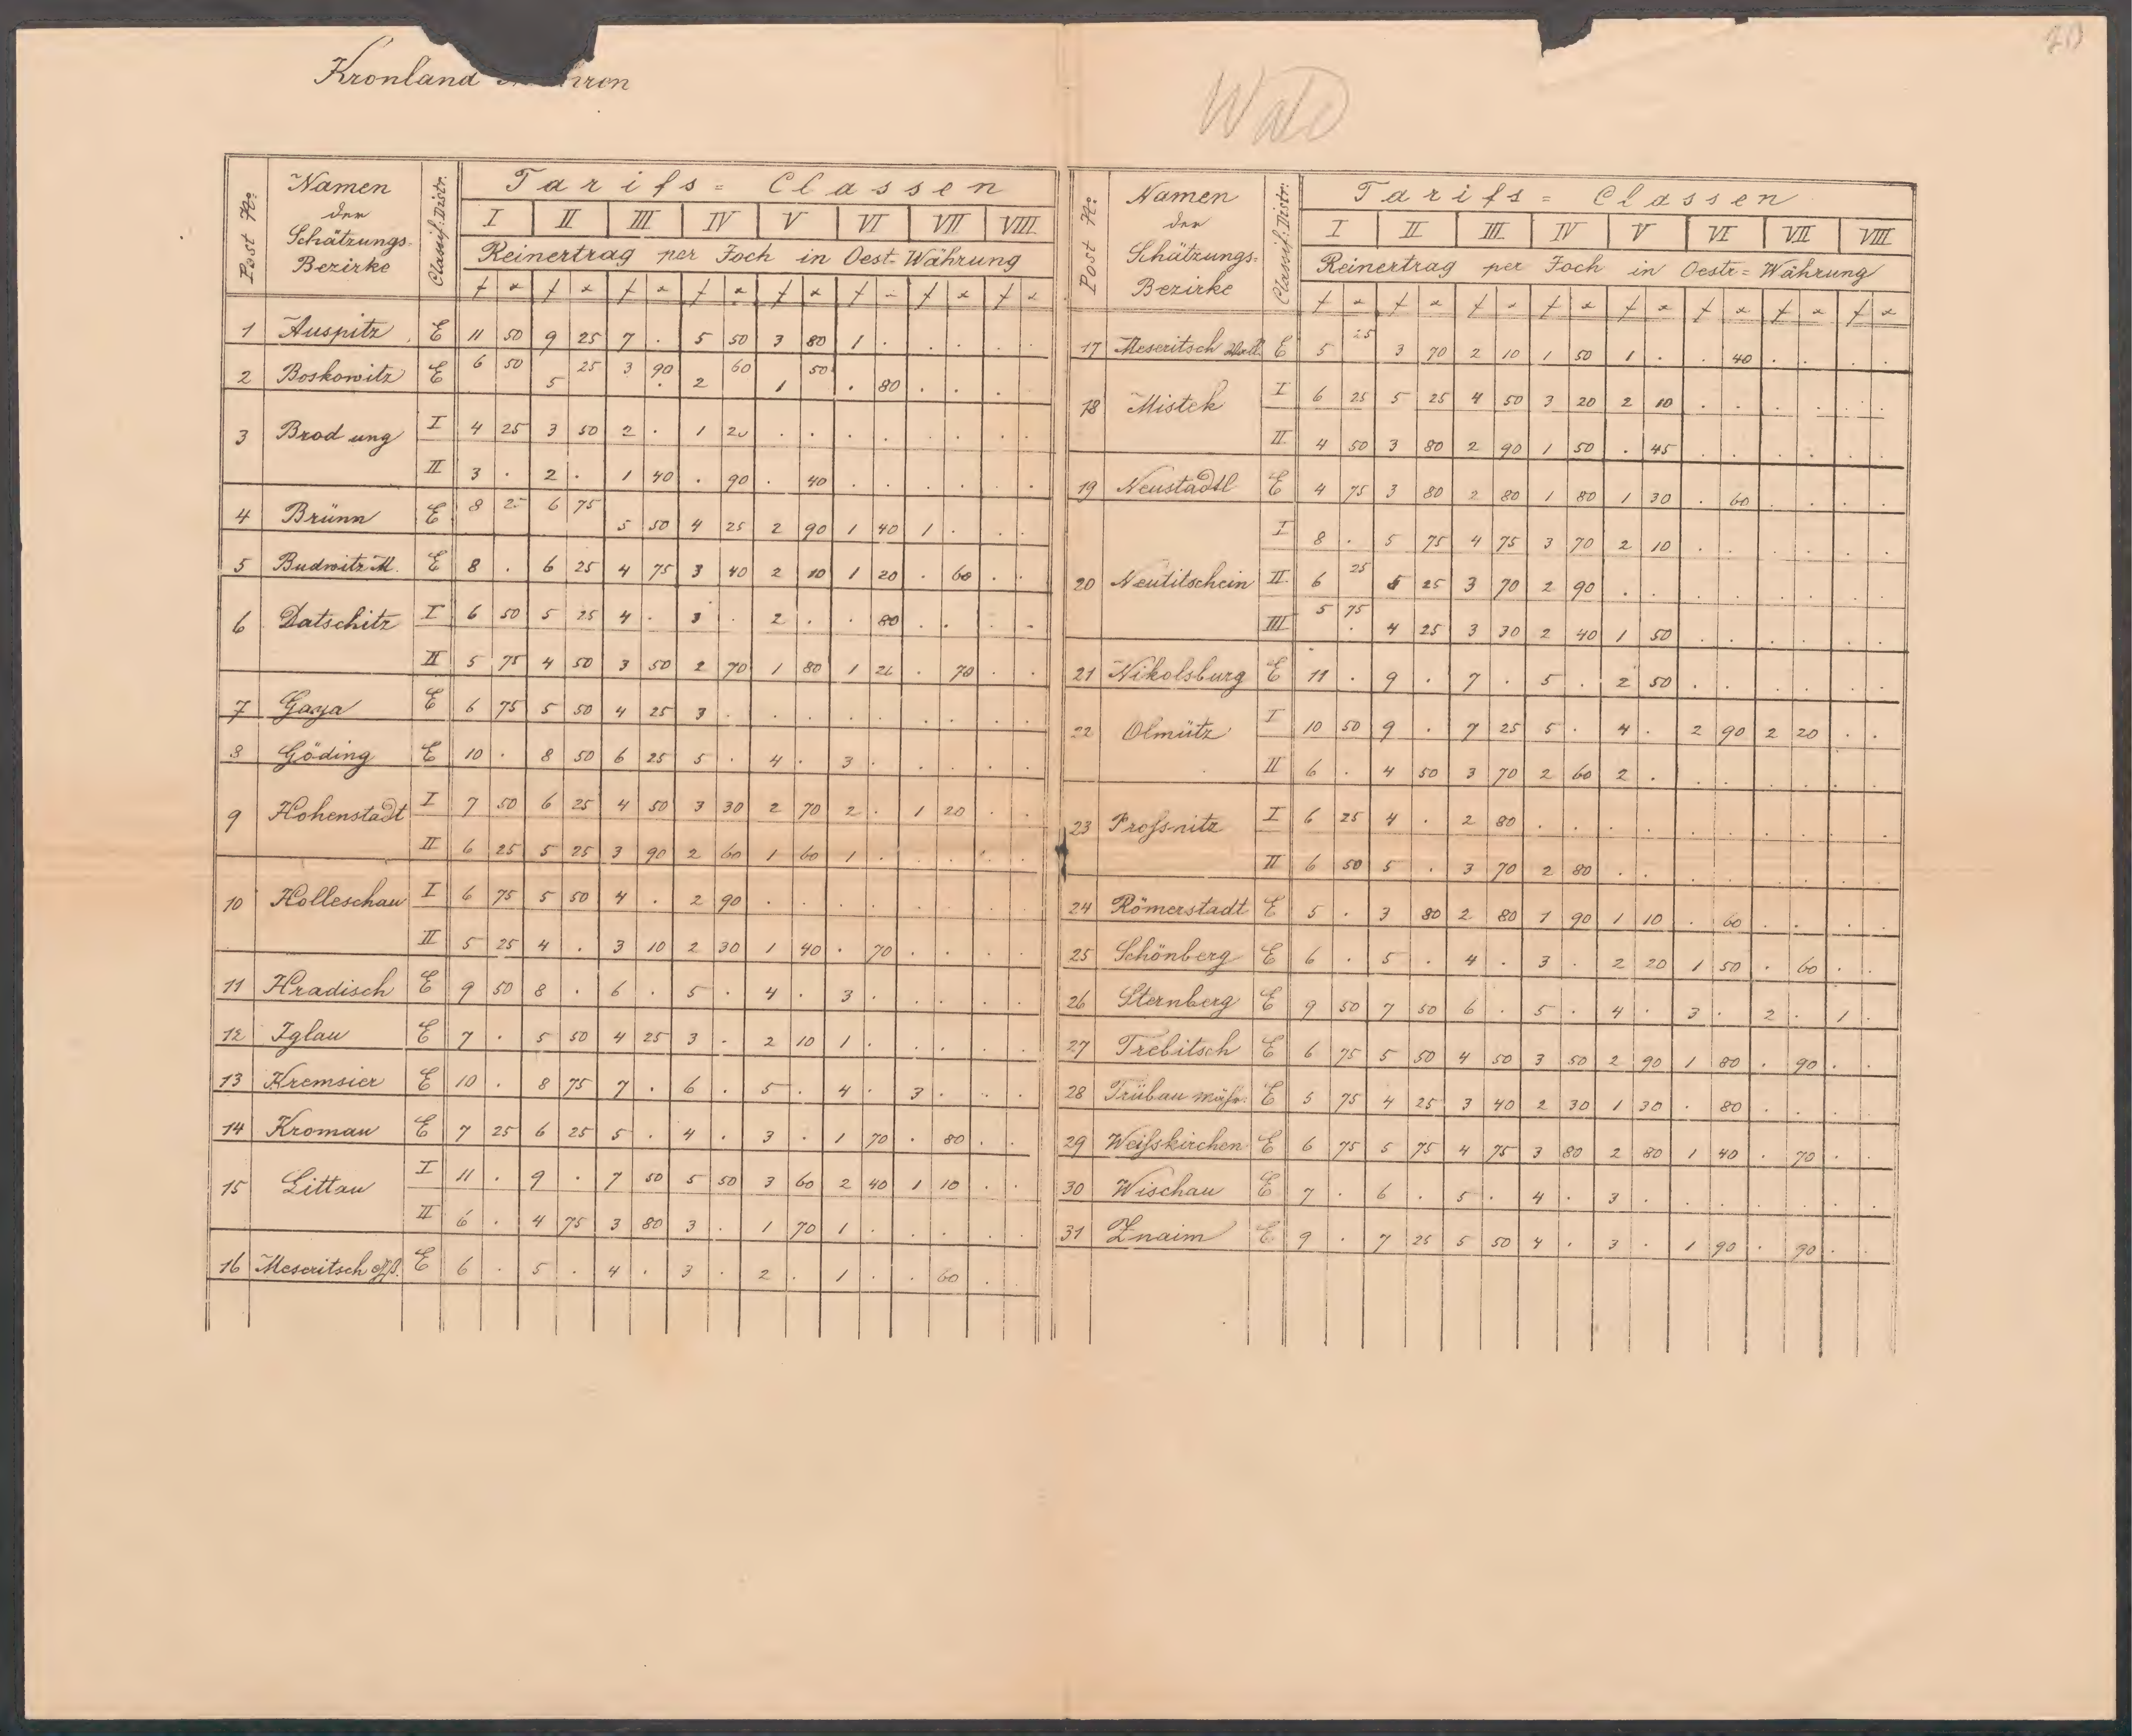 20
Kronland Mähren
Wald
Post No: Namen der Schätzungs-Bezirke Classif: Distr. Tarifs = Classen
I II III IV V VI VII VIII
Reinertrag per Joch in Oest. Währung
f x f x f x f x f x f x f x f x
1 Auspitz E 11 50 9 25 7 . 5 50 3 80 1 . . . . .
2 Boskowitz E 6 50 5 25 3 90 2 60 1 50 . 80 . . .
3 Brod ung I 4 25 3 50 2 . 1 20 . . . . . . . .
II 3 . 2 . 1 40 . 90 . 40 . . . . . .
4 Brünn E 8 25 6 75 5 50 4 25 2 90 1 40 1 . . .
5 Budwitz M. E 8 . 6 25 4 75 3 40 2 10 1 20 . 60 . .
6 Datschitz I 6 50 5 25 4 . 3 . 2 . . 80 . . . .
II 5 75 4 50 3 50 2 70 1 80 1 20 . 70 . .
7 Gaya E 6 75 5 50 4 25 3 . . . . . . . . .
8 Göding E 10 . 8 50 6 25 5 . 4 . 3 . . . . .
9 Hohenstadt I 7 50 6 25 4 50 3 30 2 70 2 . 1 20 . .
II 6 25 5 25 3 90 2 60 1 60 1 . . . . .
10 Holleschau I 6 75 5 50 4 . 2 90 . . . . . . . .
II 5 25 4 . 3 10 2 30 1 40 . 70 . . . .
11 Hradisch E 9 50 8 . 6 . 5 . 4 . 3 . . . . .
12 Iglau E 7 . 5 50 4 25 3 . 2 10 1 . . . . .
13 Kremsier E 10 . 8 75 7 . 6 . 5 . 4 . 3 . . .
14 Kromau E 7 25 6 25 5 . 4 . 3 . 1 70 . 80 . .
15 Littau I 11 . 9 . 7 50 5 50 3 60 2 40 1 10 . .
II 6 . 4 75 3 80 3 . 1 70 1 . . . . .
16 Meseritsch gß. E 6 . 5 . 4 . 3 . 2 . 1 . . 60 . .
Post No: Namen der Schätzungs-Bezirke Classif: Distr: Tarifs = Classen
I II III IV V VI VII VIII
Reinertrag per Joch in Oestr = Währung
f x f x f x f x f x f x f x f x
17 Meseritsch Wall. E 5 25 3 70 2 10 1 50 1 . . 40 . . . .
18 Mistek I 6 25 5 25 4 50 3 20 2 10 . . . . . .
II 4 50 3 80 2 90 1 50 . 45 . . . . . .
19 Neustadtl E 4 75 3 80 2 80 1 80 1 30 . 60 . . . .
20 Neutitschein I 8 . 5 75 4 75 3 70 2 10 . . . . . .
II 6 25 5 25 3 70 2 90 . . . . . . . .
III 5 75 4 25 3 30 2 40 1 50 . . . . . .
21 Nikolsburg E 11 . 9 . 7 . 5 . 2 50 . . . . . .
22 Olmütz I 10 50 9 . 7 25 5 . 4 . 2 90 2 20 . .
II 6 . 4 50 3 70 2 60 2 . . . . . . .
23 Proßnitz I 6 25 4 . 2 80 . . . . . . . . . .
II 6 50 5 . 3 70 2 80 . . . . . . . .
24 Römerstadt E 5 . 3 80 2 80 1 90 1 10 . 60 . . . .
25 Schönberg E 6 . 5 . 4 . 3 . 2 20 1 50 . 60 . .
26 Sternberg E 9 50 7 50 6 . 5 . 4 . 3 . 2 . 1 .
27 Trebitsch E 6 75 5 50 4 50 3 50 2 90 1 80 . 90 . .
28 Trübau mähr. E 5 75 4 25 3 40 2 30 1 30 . 80 . . . .
29 Weißkirchen E 6 75 5 75 4 75 3 80 2 80 1 40 . 70 . .
30 Wischau E 7 . 6 . 5 . 4 . 3 . . . . . . .
31 Znaim E 9 . 7 25 5 50 4 . 3 . 1 90 . 90 . .